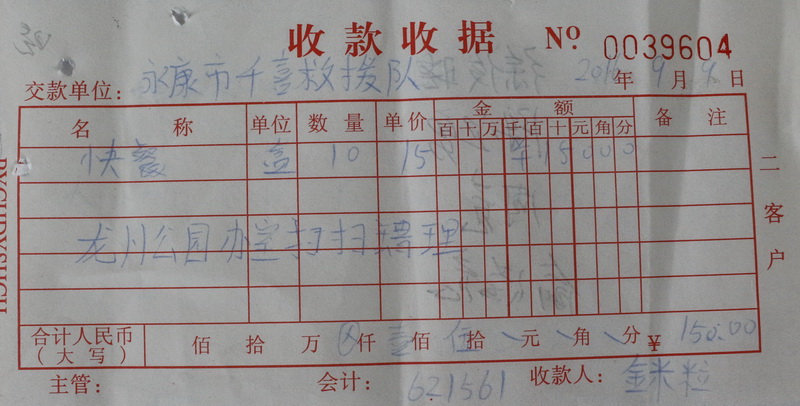 收款收据 No 0039604
交款单位: 永康市千喜救援队 2016年9月4日
名称 单位 数量 单价 金额 备注
百 十 万 千 百 十 元 角 分
快餐 盒 10 15 ¥ 1 5 0 0 0
龙州公园办室扫扫理
合计人民币(大写) 佰 拾 万 ⊗仟 壹佰 伍拾 \元 \角 \分 ¥ 150.00
主管: 会计: 621561 收款人: 金米粒
二 客户